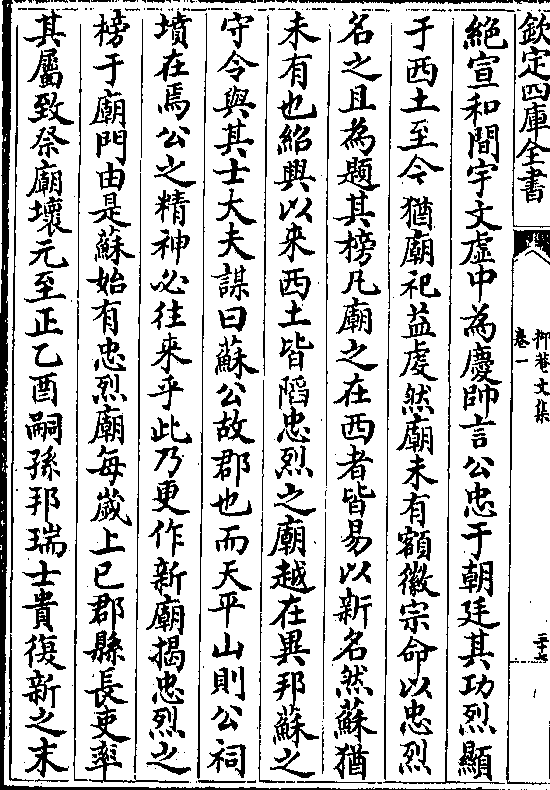 欽定四庫全書
抑菴文集
卷一
絕宣和間宇文虛中為慶帥言公忠于朝廷其功烈顯
于西土至今猶廟祀益虔然廟未有額徽宗命以忠烈
名之且為題其榜凡廟之在西者皆易以新名然蘇猶
未有也紹興以來西土皆䧟忠烈之廟越在異邦蘇之
守令與其士大夫謀曰蘇公故郡也而天平山則公祠
墳在焉公之精神必往來乎此乃更作新廟揭忠烈之
榜于廟門由是蘇始有忠烈廟每歲上巳郡縣長吏率
其屬致祭廟壞元至正乙酉嗣孫邦瑞士貴復新之末